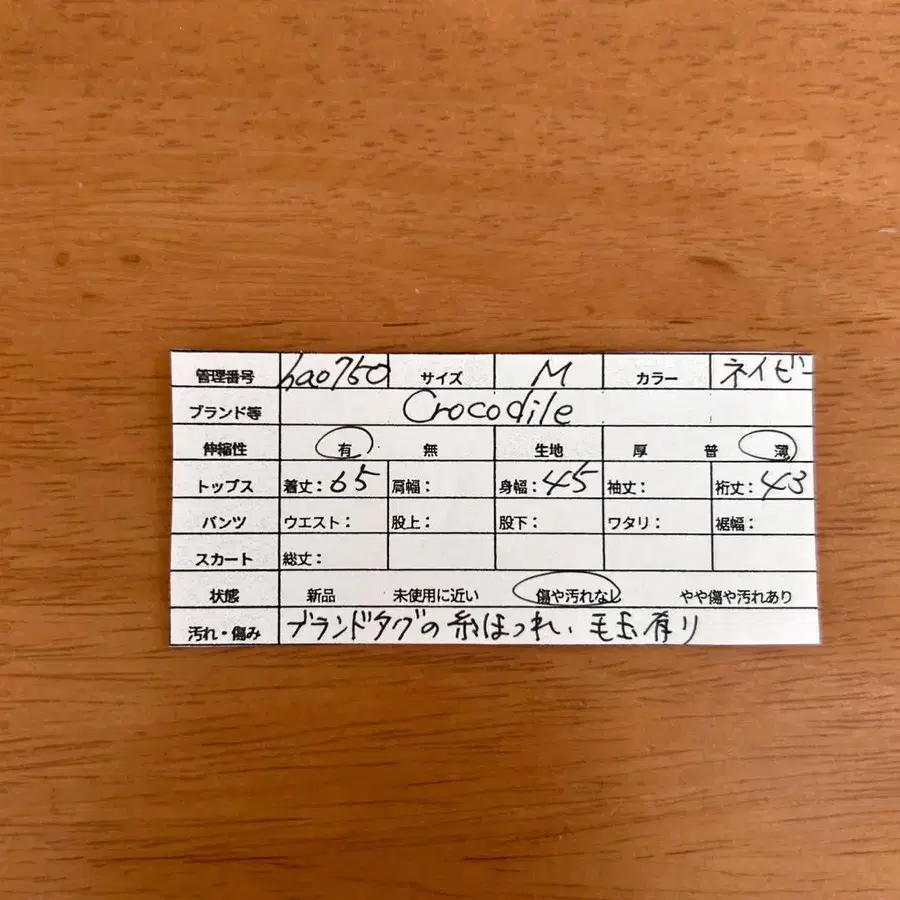 管理番号 hao750 サイズ M カラー ネイビー
ブランド等 Crocodile
伸縮性 有 無 生地 厚 普 薄
トップス 着丈:65 肩幅: 身幅:45 袖丈: 裄丈:43
パンツ ウエスト: 股上: 股下: ワタリ: 裾幅:
スカート 総丈:
状態 新品 未使用に近い 傷や汚れなし やや傷や汚れあり
汚れ・傷み ブランドタグの糸ほつれ、毛玉有り